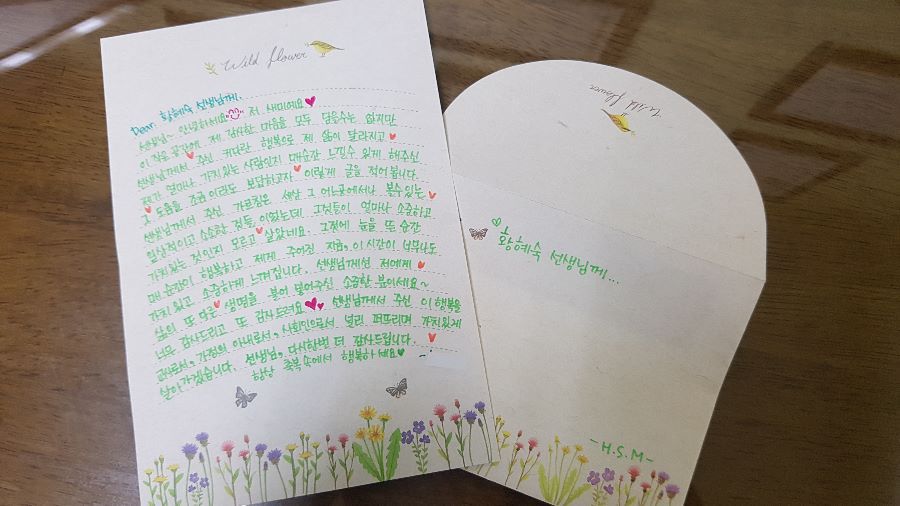 Wild flower
Dear. 황혜숙 선생님께.
선생님~ 안녕하세요 저 새미에요♥
이 작은 공간에 제 감사한 마음을 모두 담을수는 없지만
선생님께서 주신 커다란 행복으로 제 삶이 달라지고
제가 얼마나 가치있는 사람인지 매순간 느낄수 있게 해주신
그 도움을 조금이라도 보답하고자 이렇게 글을 적어봅니다.
선생님께서 주신 가르침은 세상 그 어느곳에서나 볼수있는
일상적이고 소소한 것들이었는데 그것들이 얼마나 소중하고
가치있는 것인지 모르고 살았네요. 그것에 눈을 뜬 순간
매 순간이 행복하고 제게 주어진 지금, 이 시간이 너무나도
가치있고 소중하게 느껴집니다. 선생님께선 저에게
삶의 또 다른 생명을 불어 넣어주신 소중한 분이세요~
너무 감사드리고 또 감사드려요 선생님께서 주신 이 행복을
교사로서, 가정의 아내로서, 사회인으로서 널리 퍼뜨리며 가치있게
살아가겠습니다. 선생님, 다시한번 더 감사드립니다.
항상 축복속에서 행복하세요♥
Wild flower
♡황혜숙 선생님께...
-H.S.M-